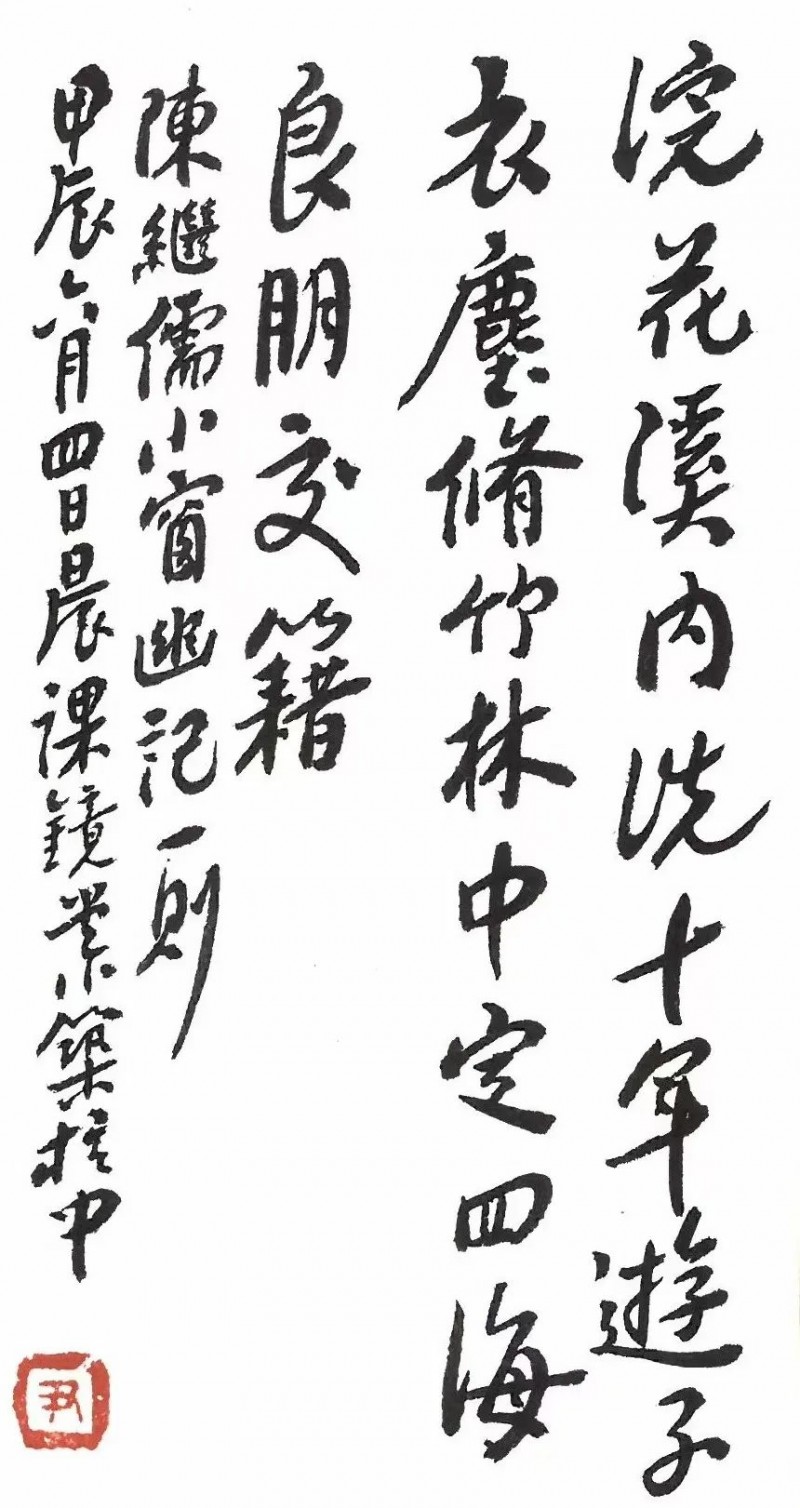 浣花溪内洗十年遊子
衣塵脩竹林中定四海
良朋交籍
陳繼儒小窗幽記一則
甲辰六月四日晨課鏡堂築中
尹